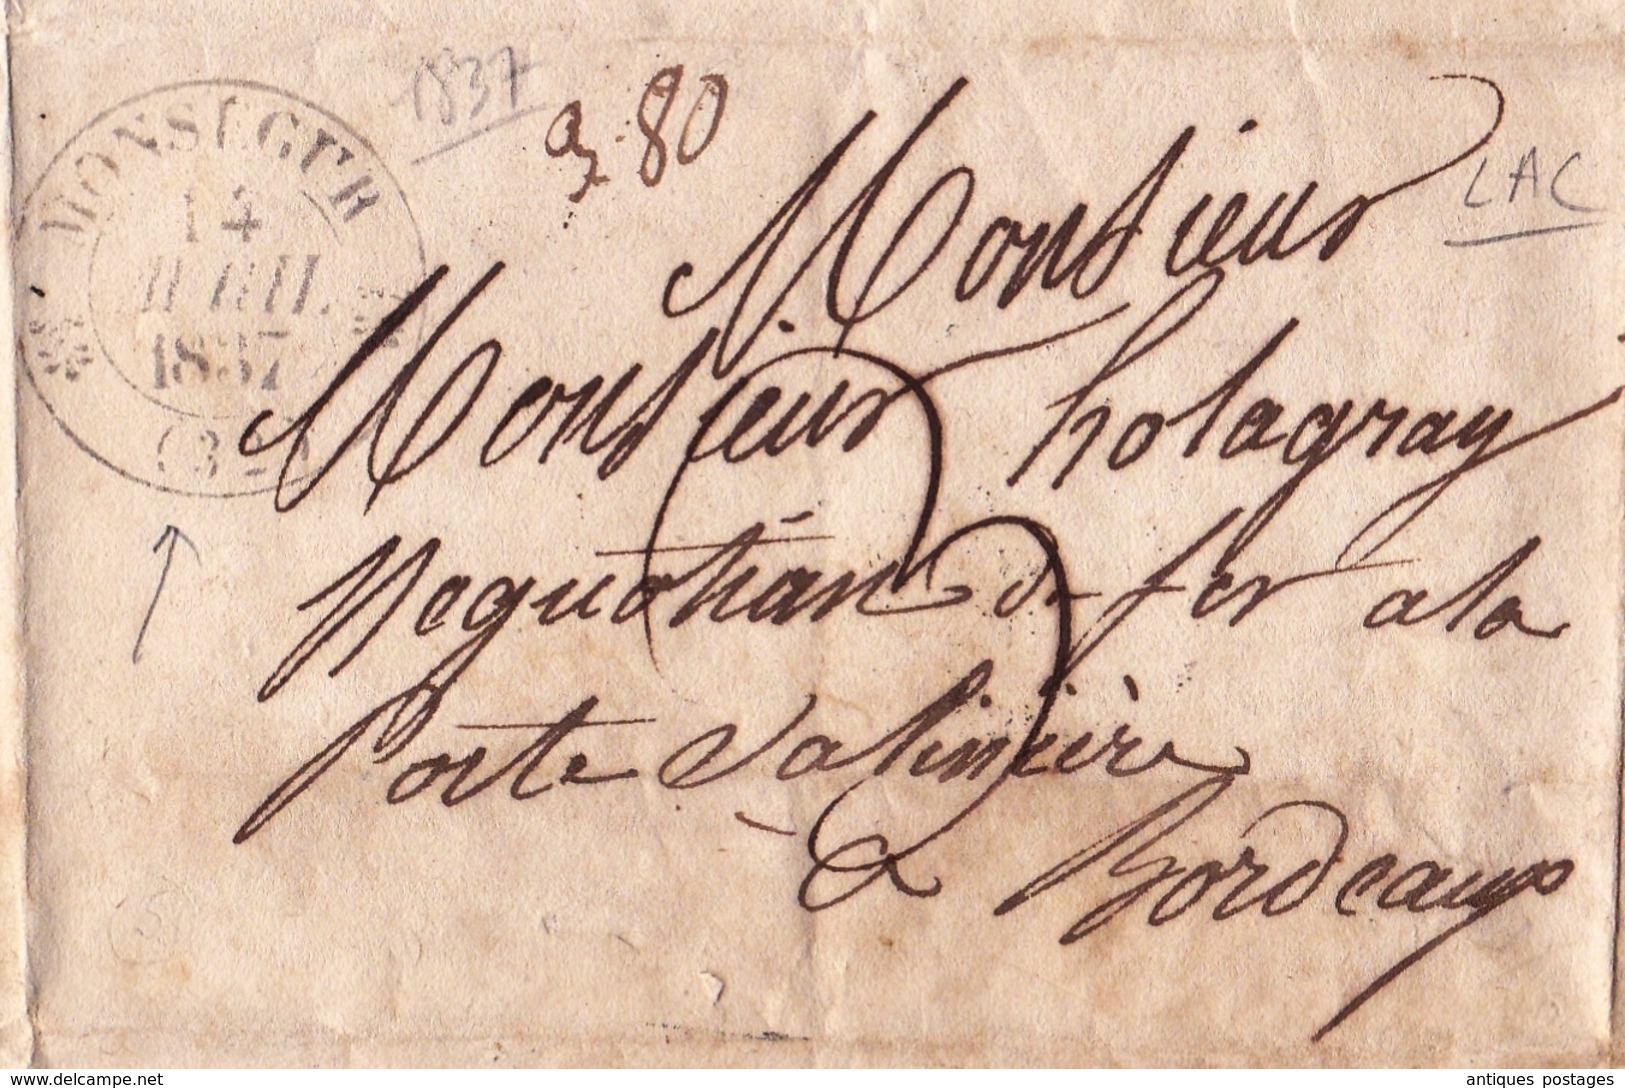 1837
3.80
LAC
MONSEGUR
14
AVRIL
1837
(32)
Monsieur
Monsieur holagray
Neguotian de fer a la
Porte Salinière
a Bordeaux
www.delcampe.net
antiques postages